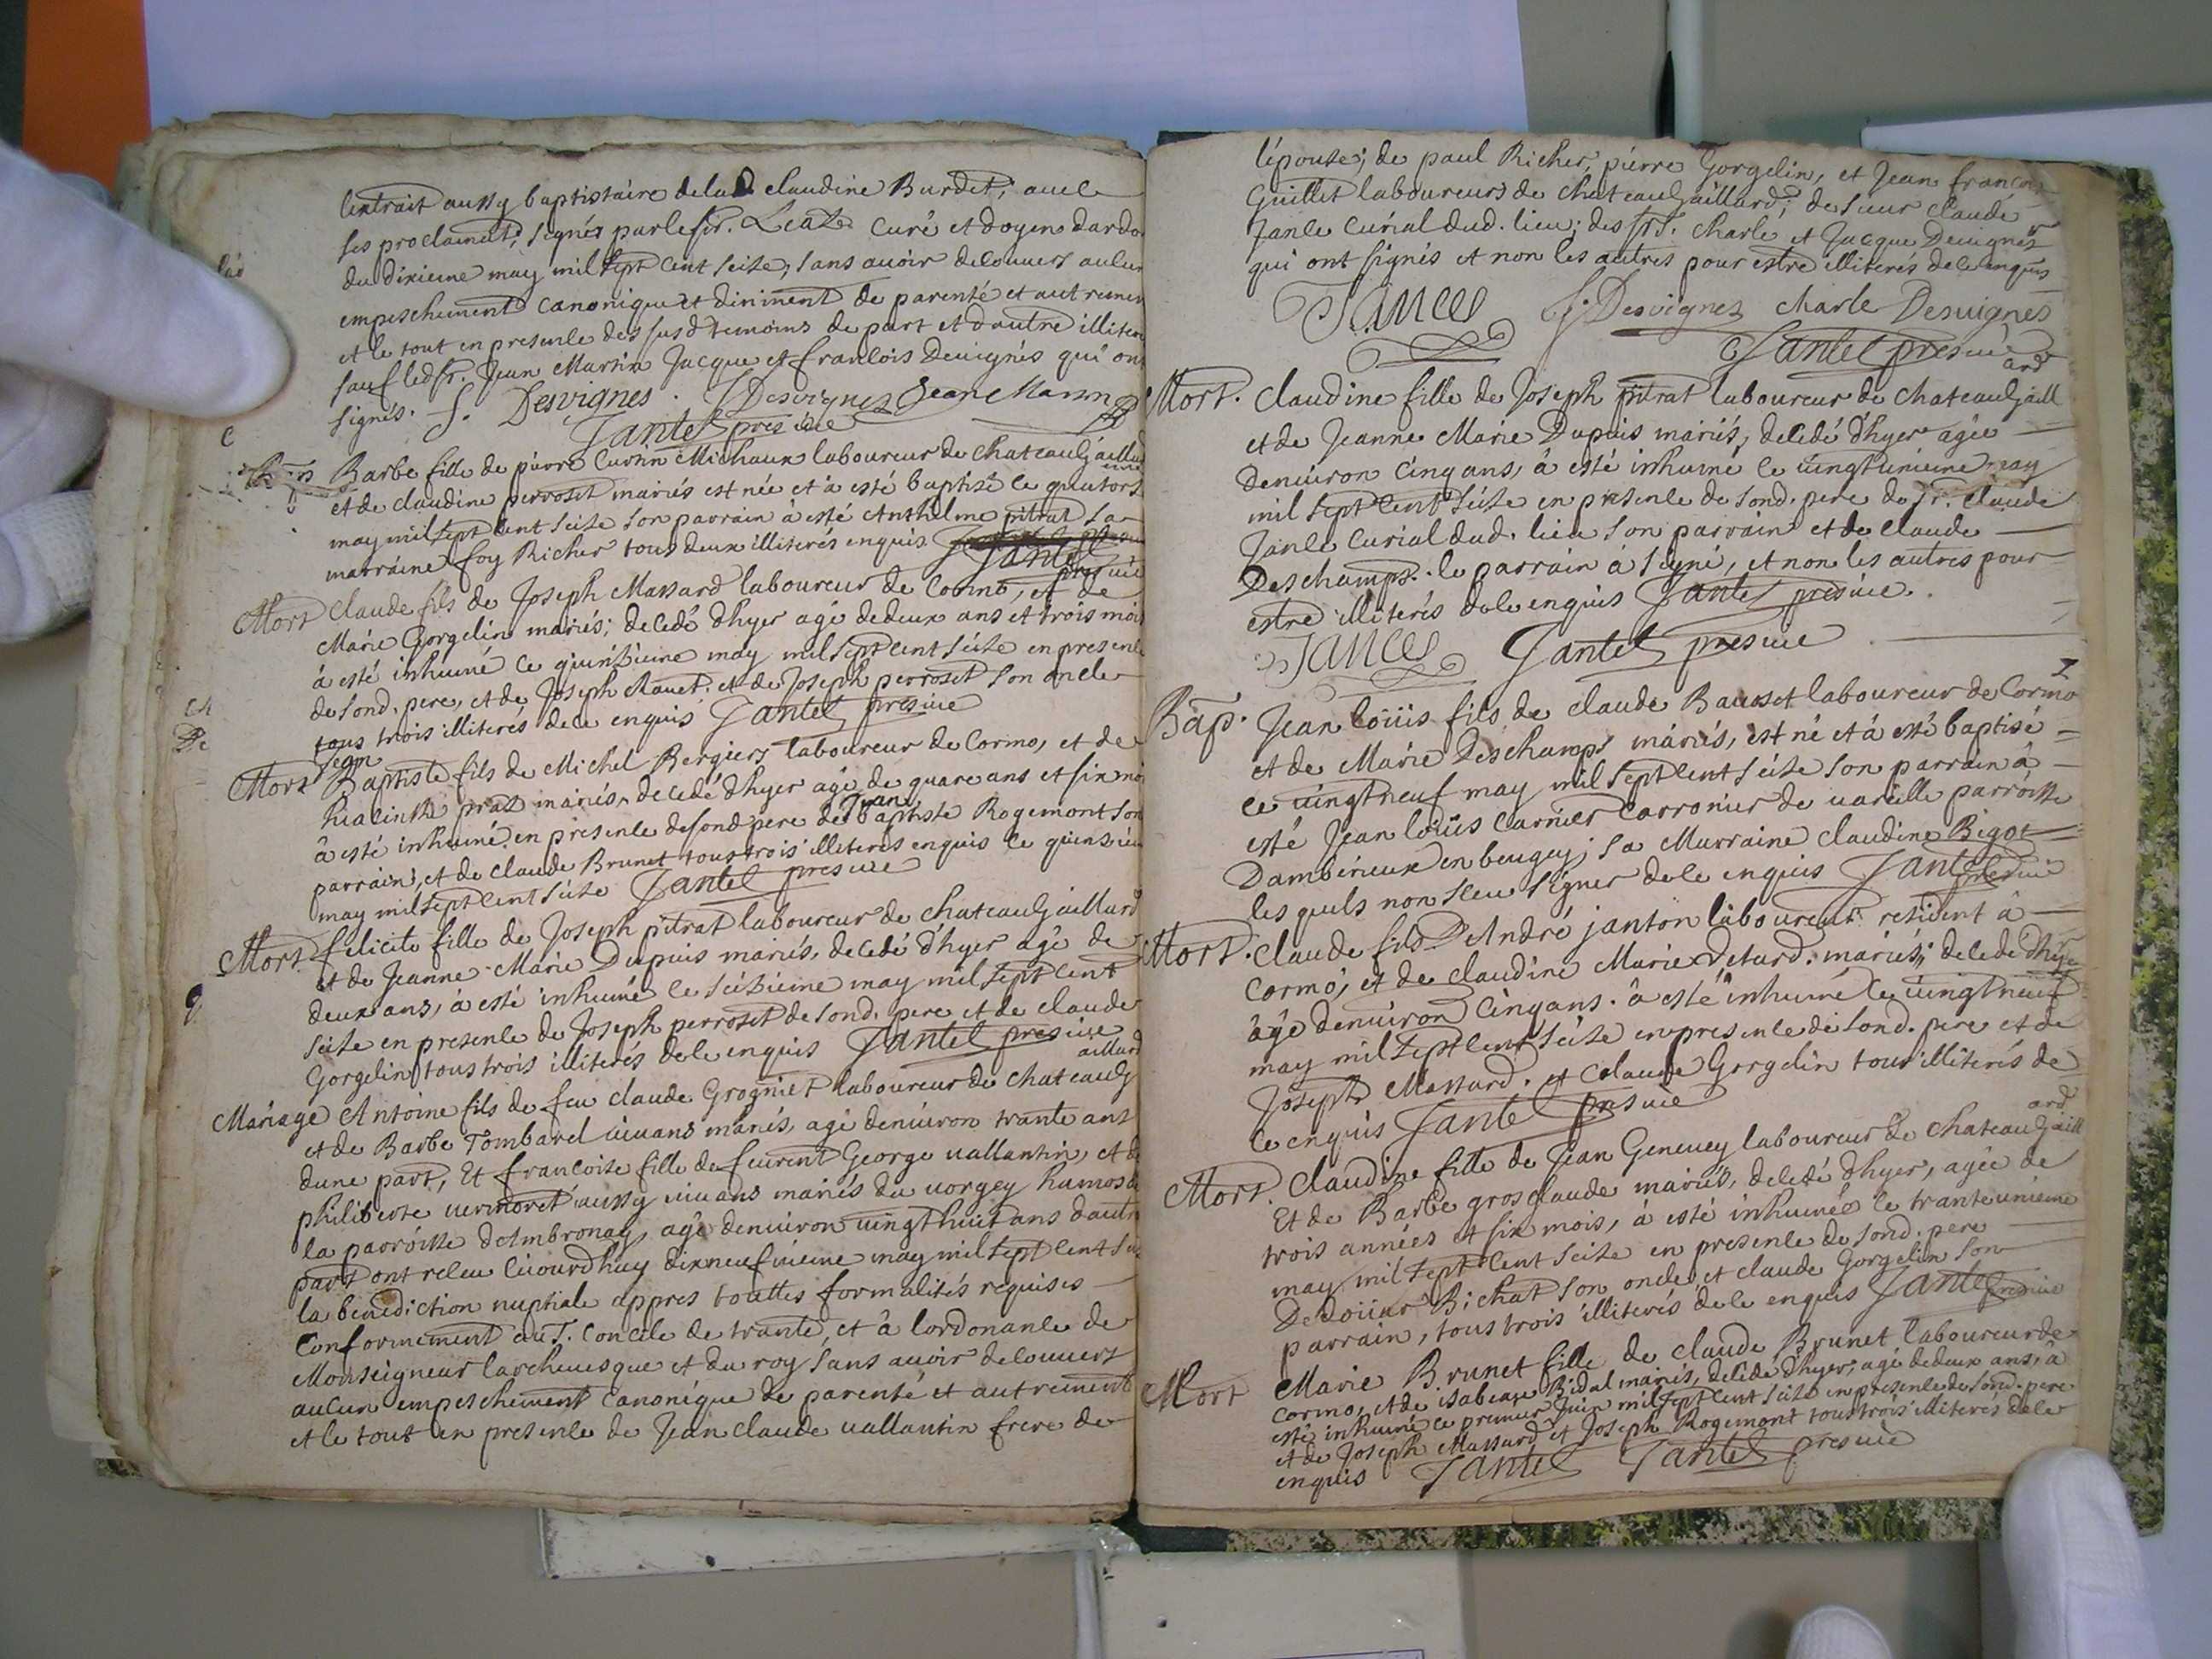 lextrait aussy baptistaire de lad claudine Burdet; auec
ses proclamat; signés par le sr. Leat curé et doyen dardo
du dixieme may mil sept cent seise; sans auoir decouuers aucun
empeschement canonique et diriment de parenté et autremen
et le tout en presence des susd temoins de part et dautre illiter
sauf led sr. Jean Martin Jacque et francois Deuignés qui on
signés. f. Desvignes. J Desvignes Jean Martin
Jantet pres uic
Barbe fille de pierre Curtin Michaux laboureur de chateaugaillard
et de claudine perroset mariés est née et à esté baptisé le quatorsieme
may mil sept cent seise son parrain à esté Anthelme pitrat sa
marraine foy Richer tous deux illiterés enquis Jantet
pres uic
Mort claude fils de Joseph Massard laboureur de Cormo, et de
Marie Gorgelin mariés; decedé d'hyer agé de deux ans et trois moi
à esté inhumé ce quinsieme may mil sept cent seise en presence
de sond. pere, et de Joseph chauet. et de Joseph perroset son oncle
tous trois illiterés de ce enquis Jantet pres uic
Jean
Mort Baptiste fils de Michel Bergiers laboureur de Cormo, et de
hiacinthe prat mariés, decedé d'hyer agé de quare ans et six moi
à esté inhumé en presence de sond pere de Jean baptiste Rogemont son
parrain, et de claude Brunet tous trois illiterés enquis ce quinsieu
may mil sept cent seise Jantet pres uic
Mort felicite fille de Joseph pitrat laboureur de chateaugaillard
et de Jeanne Marie Dupuis mariés, decedé d'hyer agé de
deux ans, à esté inhumé ce seisieme may mil sept cent
seise en presence de Joseph perroset de sond. pere et de claude
Gorgelin tous trois illiterés de ce enquis Jantet pres uic
aillard
Mariage Antoine fils de feu claude Grogniet laboureur de chateaug
et de Barbe Tombarel uiuans mariés, agé denuiron trante ans
dune part, Et francoise fille de feurent George uallantin, et de
philiberte uermoret aussy uiuans mariés du uorgey hameau de
la parroisse dAmbronay, agé denuiron uingthuit ans dautre
part ont receu cejourdhuy dixneufuieme may mil sept cent sei
la benediction nuptiale appres touttes formalités requises
Conformement au S. Concile de trante, et à lordonance de
Monseigneur larcheuesque et du roy sans auoir decouuers
aucun empeschement canonique de parenté et autrement
et le tout en presence de Jean claude uallantin frere de
lépouse; de paul Richer, pierre Gorgelin, et Jean francois
Guillet laboureurs de chateaugaillard; de sieur claude
Jance curial dud. lieu; des srs. charle et Jacque Deuignés
qui ont signés et non les autres pour estre illiterés de ce enquis
JANCE J. Desvignes charle Desuignes
Jantet pres uic
ard
Mort. Claudine fille de Joseph pitrat laboureur de chateaugaill
et de Jeanne Marie Dupuis mariés, decedé d'hyer agée
denuiron cinq ans, à esté inhumé le uingtunieme may
mil sept cent seise en presence de sond. pere de sr. claude
Jance curial dud. lieu son parrain et de claude
Deschamps. le parrain à signé, et non les autres pour
estre illiterés de ce enquis Jantet pres uic.
JANCE Jantet pres uic
Bap. Jean loüis fils de claude Bausset laboureur de Cormo
et de Marie Deschamps mariés, est né et à esté baptisé
ce uingtneuf may mil sept cent seise son parrain à
esté Jean loüis Carrier carronier de uareille parroisse
Dambérieux en beugey; sa Marraine claudine Bigot
les quels non sceu signer de ce enquis Jantet
pres uic
Mort. Claude fils D'André janton laboureur resident à
Cormo, et de claudine Marie Detard. mariés; decedé d'hye
âgé denuiron Cinq ans. à esté inhumé ce uingtneuf
may mil sept cent seise en presence de sond. pere et de
Joseph Massard. et Claude Gorgelin tous illiterés de
ce enquis Jantet pres uic
ard
Mort. Claudine fille de Jean Geneuey laboureur de chateaugaill
Et de Barbe grosclaude mariés, decedé d'hyer, agée de
trois années et six mois, à esté inhumée le trante unieme
may mil sept cent seise en presence de sond. pere
De doüiar Bichat son oncle et claude Gorgelin son
parrain, tous trois illiterés de ce enquis Jantet pres uic
Mort Marie Brunet fille de claude Brunet laboureur de
Cormo, et de isabeau Bidal mariés, decedé d'hyer; agé de deux ans, à
esté inhumé ce premier juin mil sept cent seise en presence de sond. pere
et de Joseph Massard et Joseph Rogemont tous trois illiterés de ce
enquis Jantet Jantet pres uic